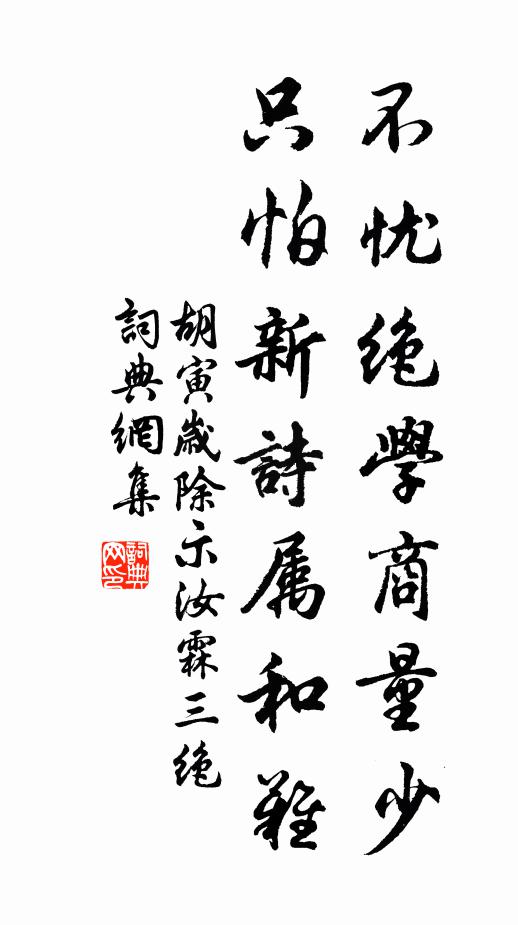 不忧绝學商量少
只怕新詩属和難
胡寅歲除示汝霖三绝
詞典網集
詞典网印